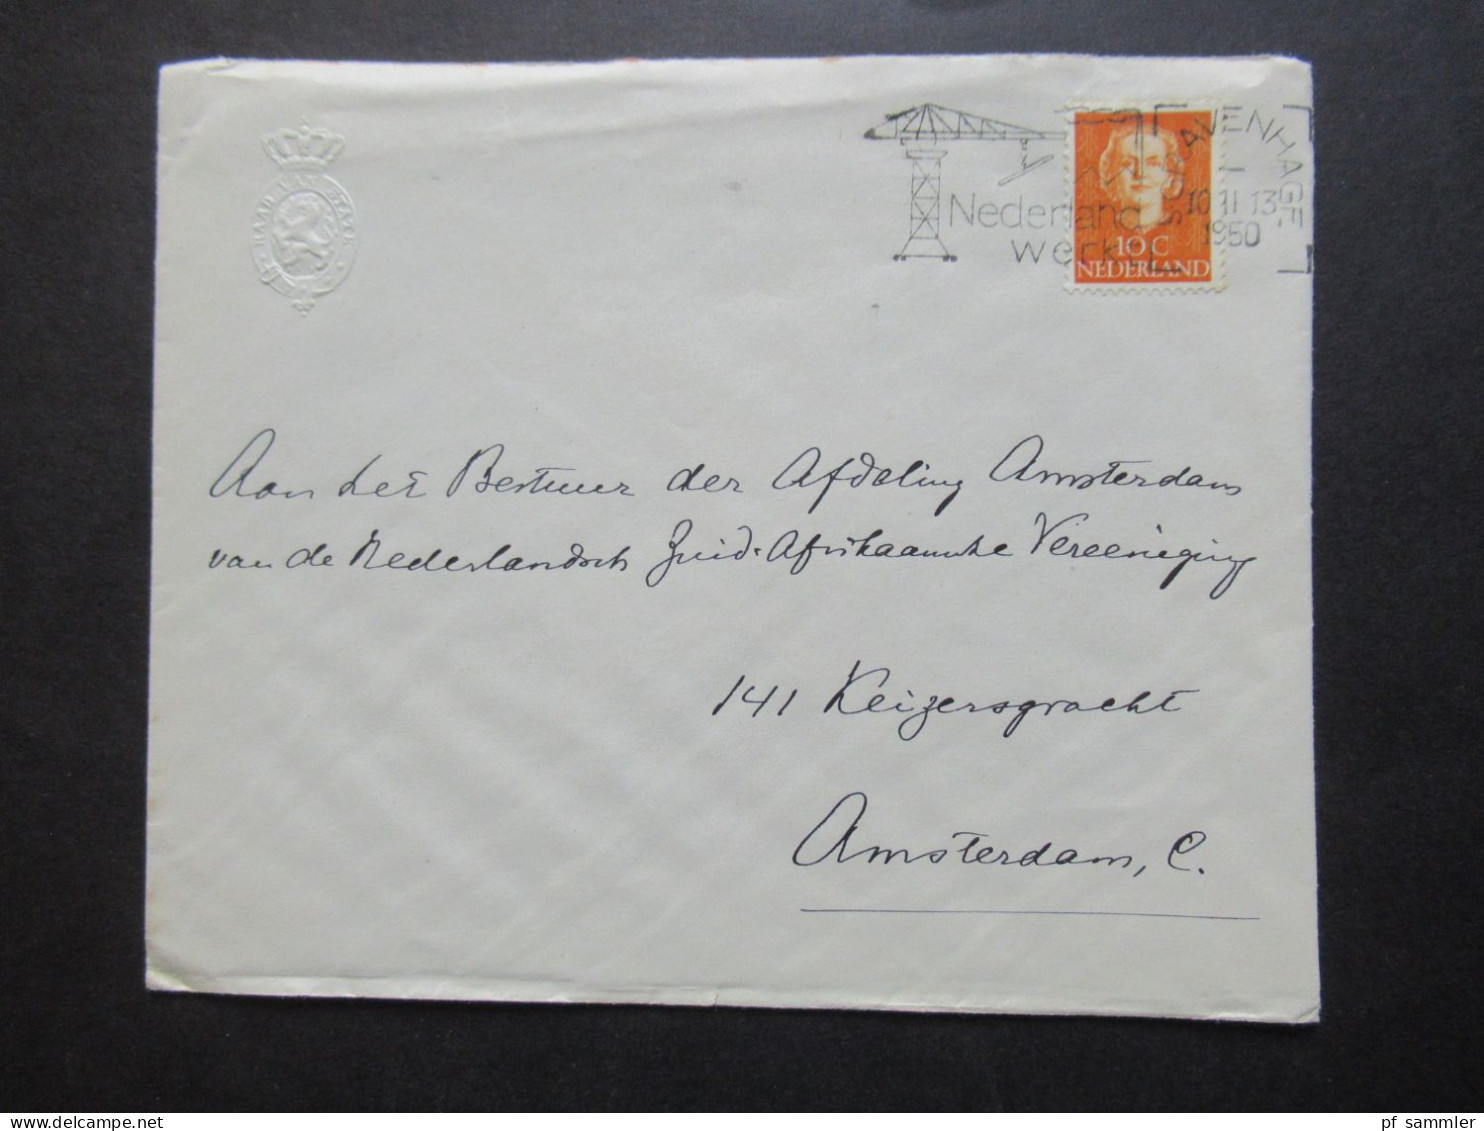 RAAD VAN STATE
Nederland
werkt
'S GRAVENHAGE
1950
10 C
NEDERLAND
Aan het Bestuur der Afdeling Amsterdam
van de Nederlandsch Zuid-Afrikaansche Vereeniging
141 Keizersgracht
Amsterdam, C.
pf sammler
delcampe.net